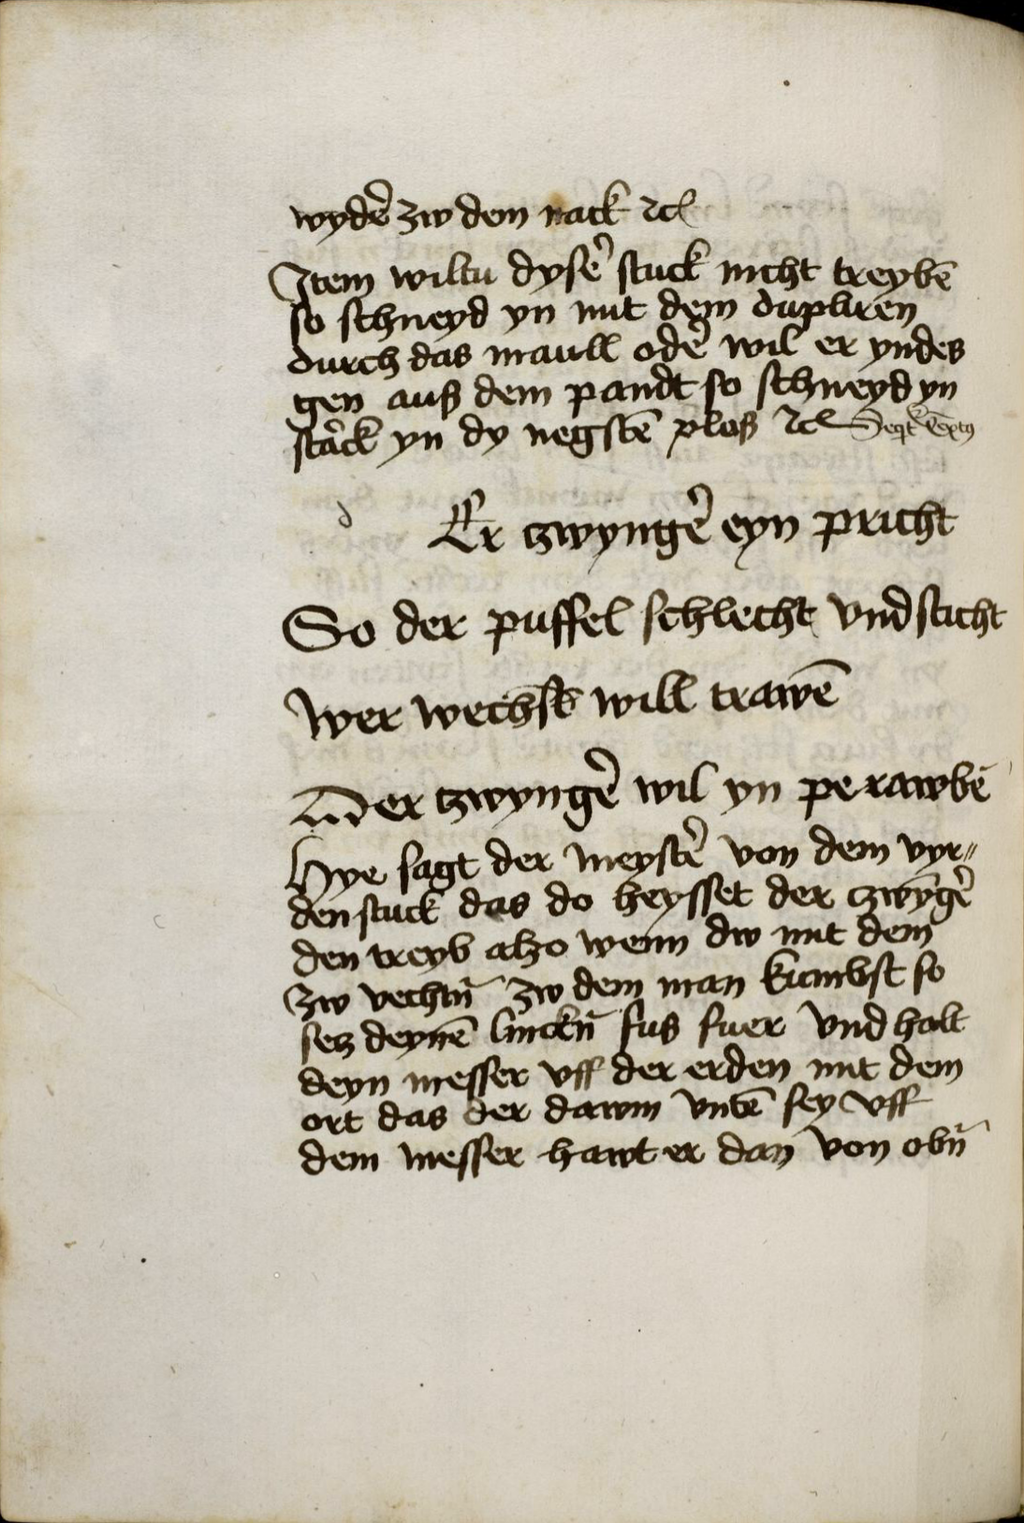 wydẽ zw dem nack ⁊cͣ
Item wiltu dysẽ stuck nicht treybẽ
so schneyd yn mit dem dupliren
durch das maull odẽ wil er yndes
gen auß dem pandt so schneyd yn
starck yn dy negstẽ ploß ⁊cͣ
d Er zwyngẽ eyn pricht
So der puffel schlecht vnd sticht
Wer wechslt will trawẽ
Der zwyngẽ wil yn perawbẽ
Hye sagt der meystẽ von dem vyr〃
den stuck das do heysset der zwȳgẽ
den treyb alzo wenn dw mit dem
zw vechtñ zw dem man kumbst so
secz deynẽ linckñ fus fuer vnd halt
deyn messer vff der erden mit dem
ort das der dawm vntẽ sey vff
dem messer hawt er dan von obñ